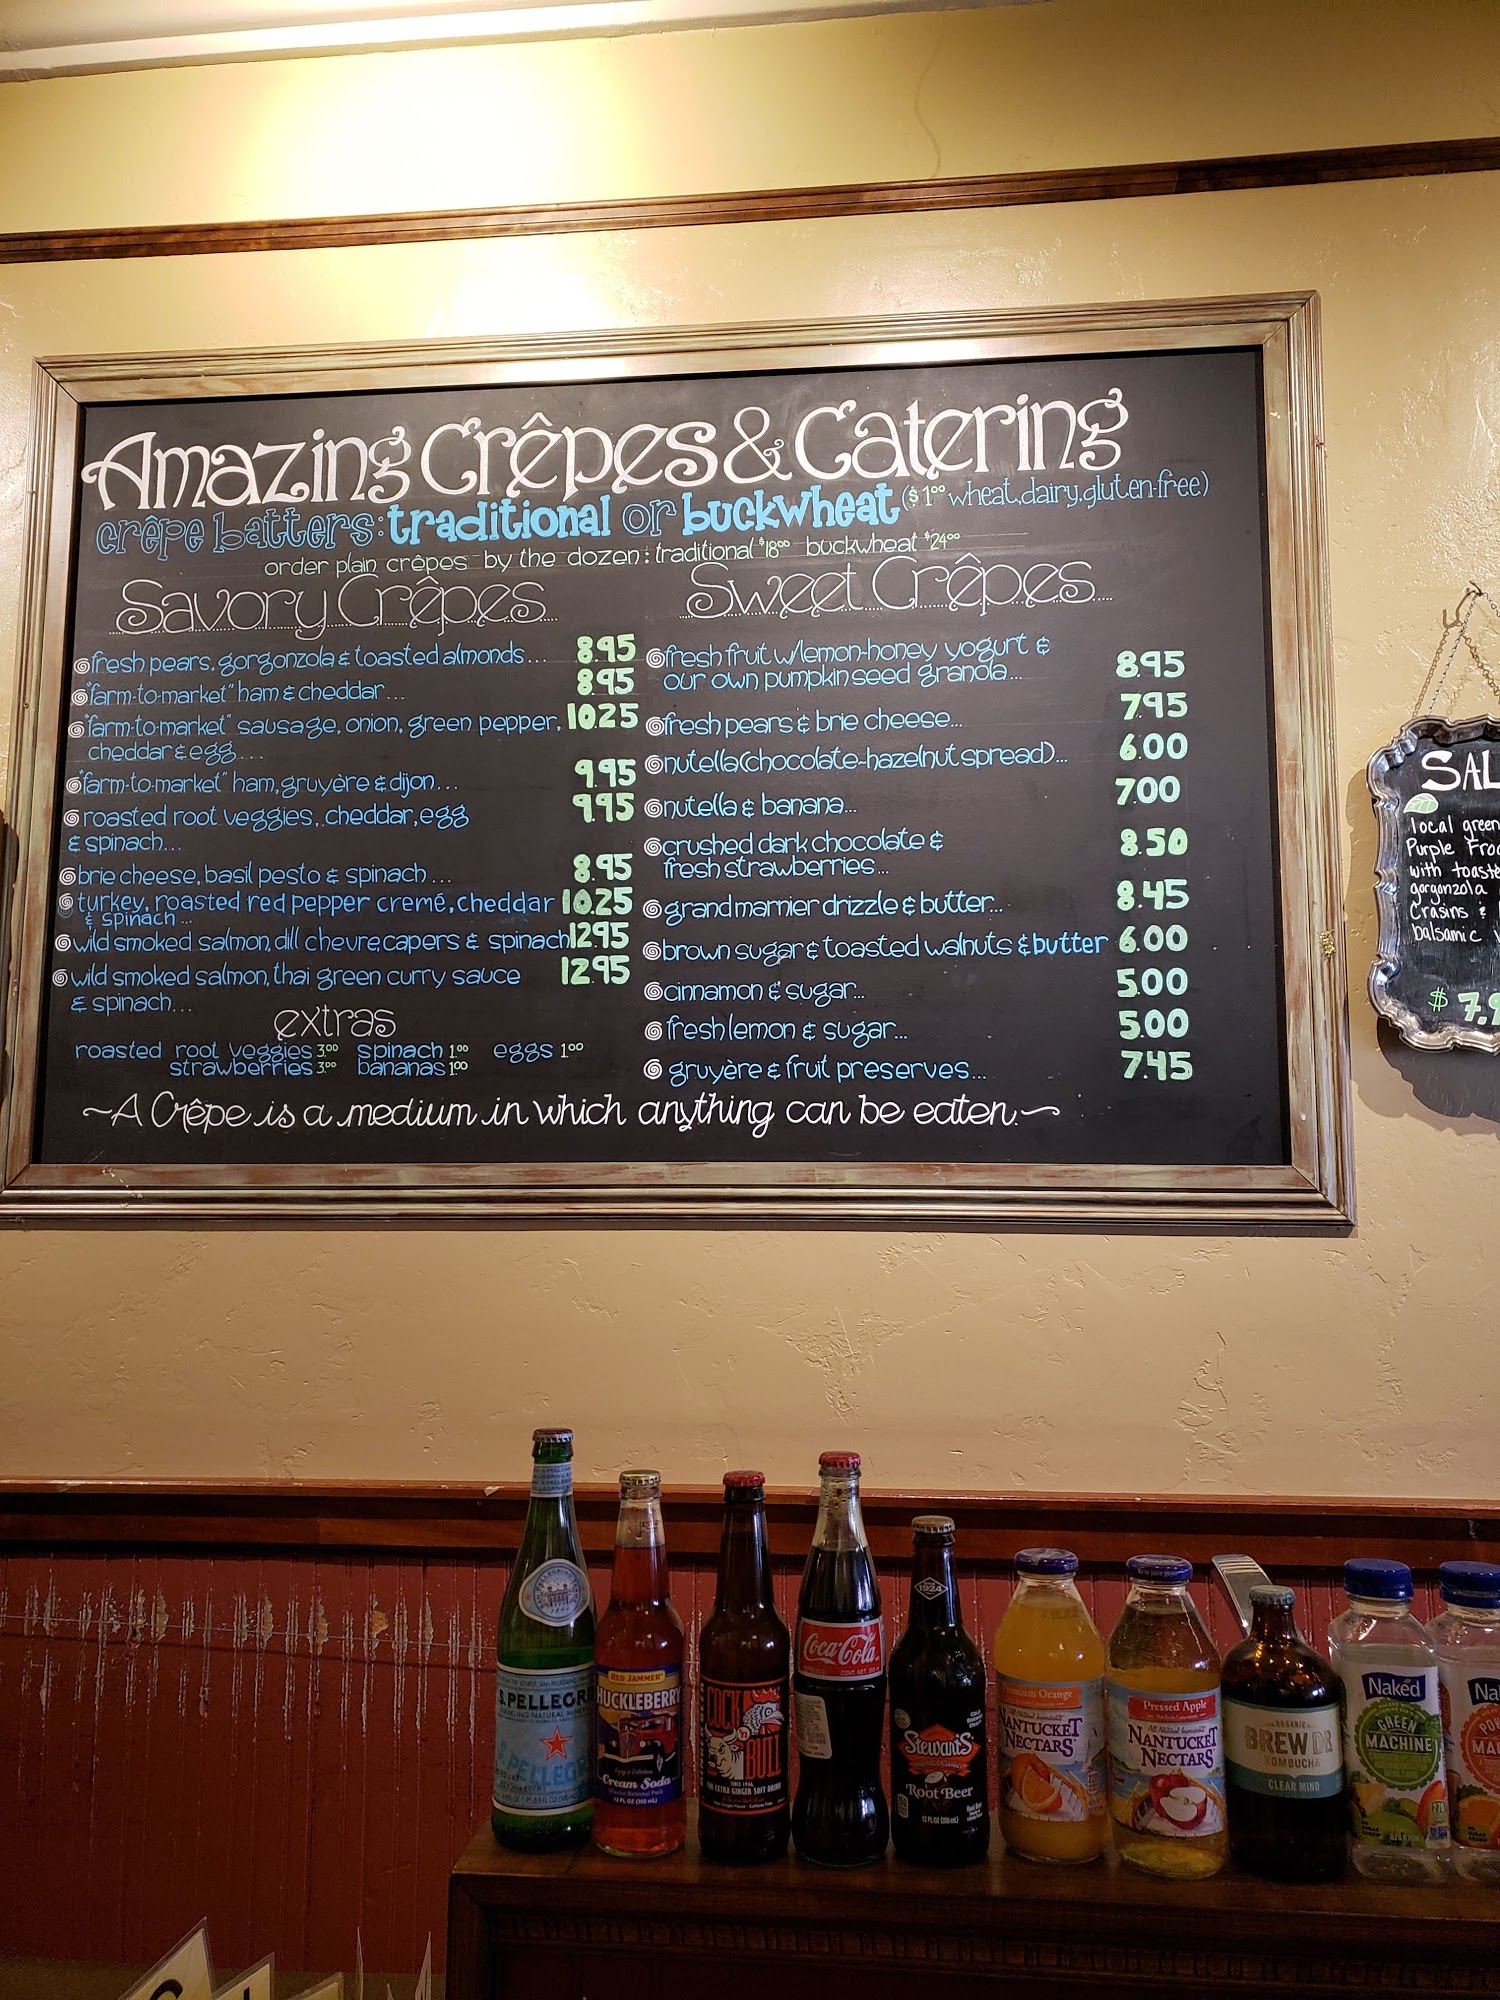 Amazing Crêpes & Catering
crêpe batters: traditional or buckwheat ($1.00 wheat, dairy, gluten-free)
order plain crêpes by the dozen: traditional $18.00 buckwheat $24.00
Savory Crêpes
fresh pears, gorgonzola & toasted almonds... 8.95
"farm-to-market" ham & cheddar... 8.95
"farm-to-market" sausage, onion, green pepper, 10.25
cheddar & egg...
"farm-to-market" ham, gruyère & dijon... 9.95
roasted root veggies, cheddar, egg 9.95
& spinach...
brie cheese, basil pesto & spinach... 8.95
turkey, roasted red pepper cremé, cheddar 10.25
& spinach...
wild smoked salmon, dill chevre, capers & spinach 12.95
wild smoked salmon, thai green curry sauce 12.95
& spinach...
extras
roasted root veggies 3.00 spinach 1.00 eggs 1.00
strawberries 3.00 bananas 1.00
Sweet Crêpes
fresh fruit w/lemon-honey yogurt &
our own pumpkin seed granola... 8.95
fresh pears & brie cheese... 7.95
nutella (chocolate-hazelnut spread)... 6.00
nutella & banana... 7.00
crushed dark chocolate & 8.50
fresh strawberries...
grand marnier drizzle & butter... 8.45
brown sugar & toasted walnuts & butter 6.00
cinnamon & sugar... 5.00
fresh lemon & sugar... 5.00
gruyère & fruit preserves... 7.45
~A Crêpe is a medium in which anything can be eaten.~
SAL
local green
Purple Fro
with toaste
gorgonzola
Crasins &
balsamic
$ 7.9
S.PELLEGRI
S.PELLEGR
RED JAMMER
HUCKLEBERRY
Cream Soda
12 FL OZ (355 mL)
COCK
BULL
SINCE 1946
EXTRA GINGER SOFT DRINK
Coca-Cola
1924
Stewart's
Root Beer
12 FL OZ (355 mL)
Premium Orange
NANTUCKET
NECTARS
Pressed Apple
NANTUCKET
NECTARS
ORGANIC
BREW DR
KOMBUCHA
CLEAR MIND
Naked
GREEN
MACHINE
Na
MA